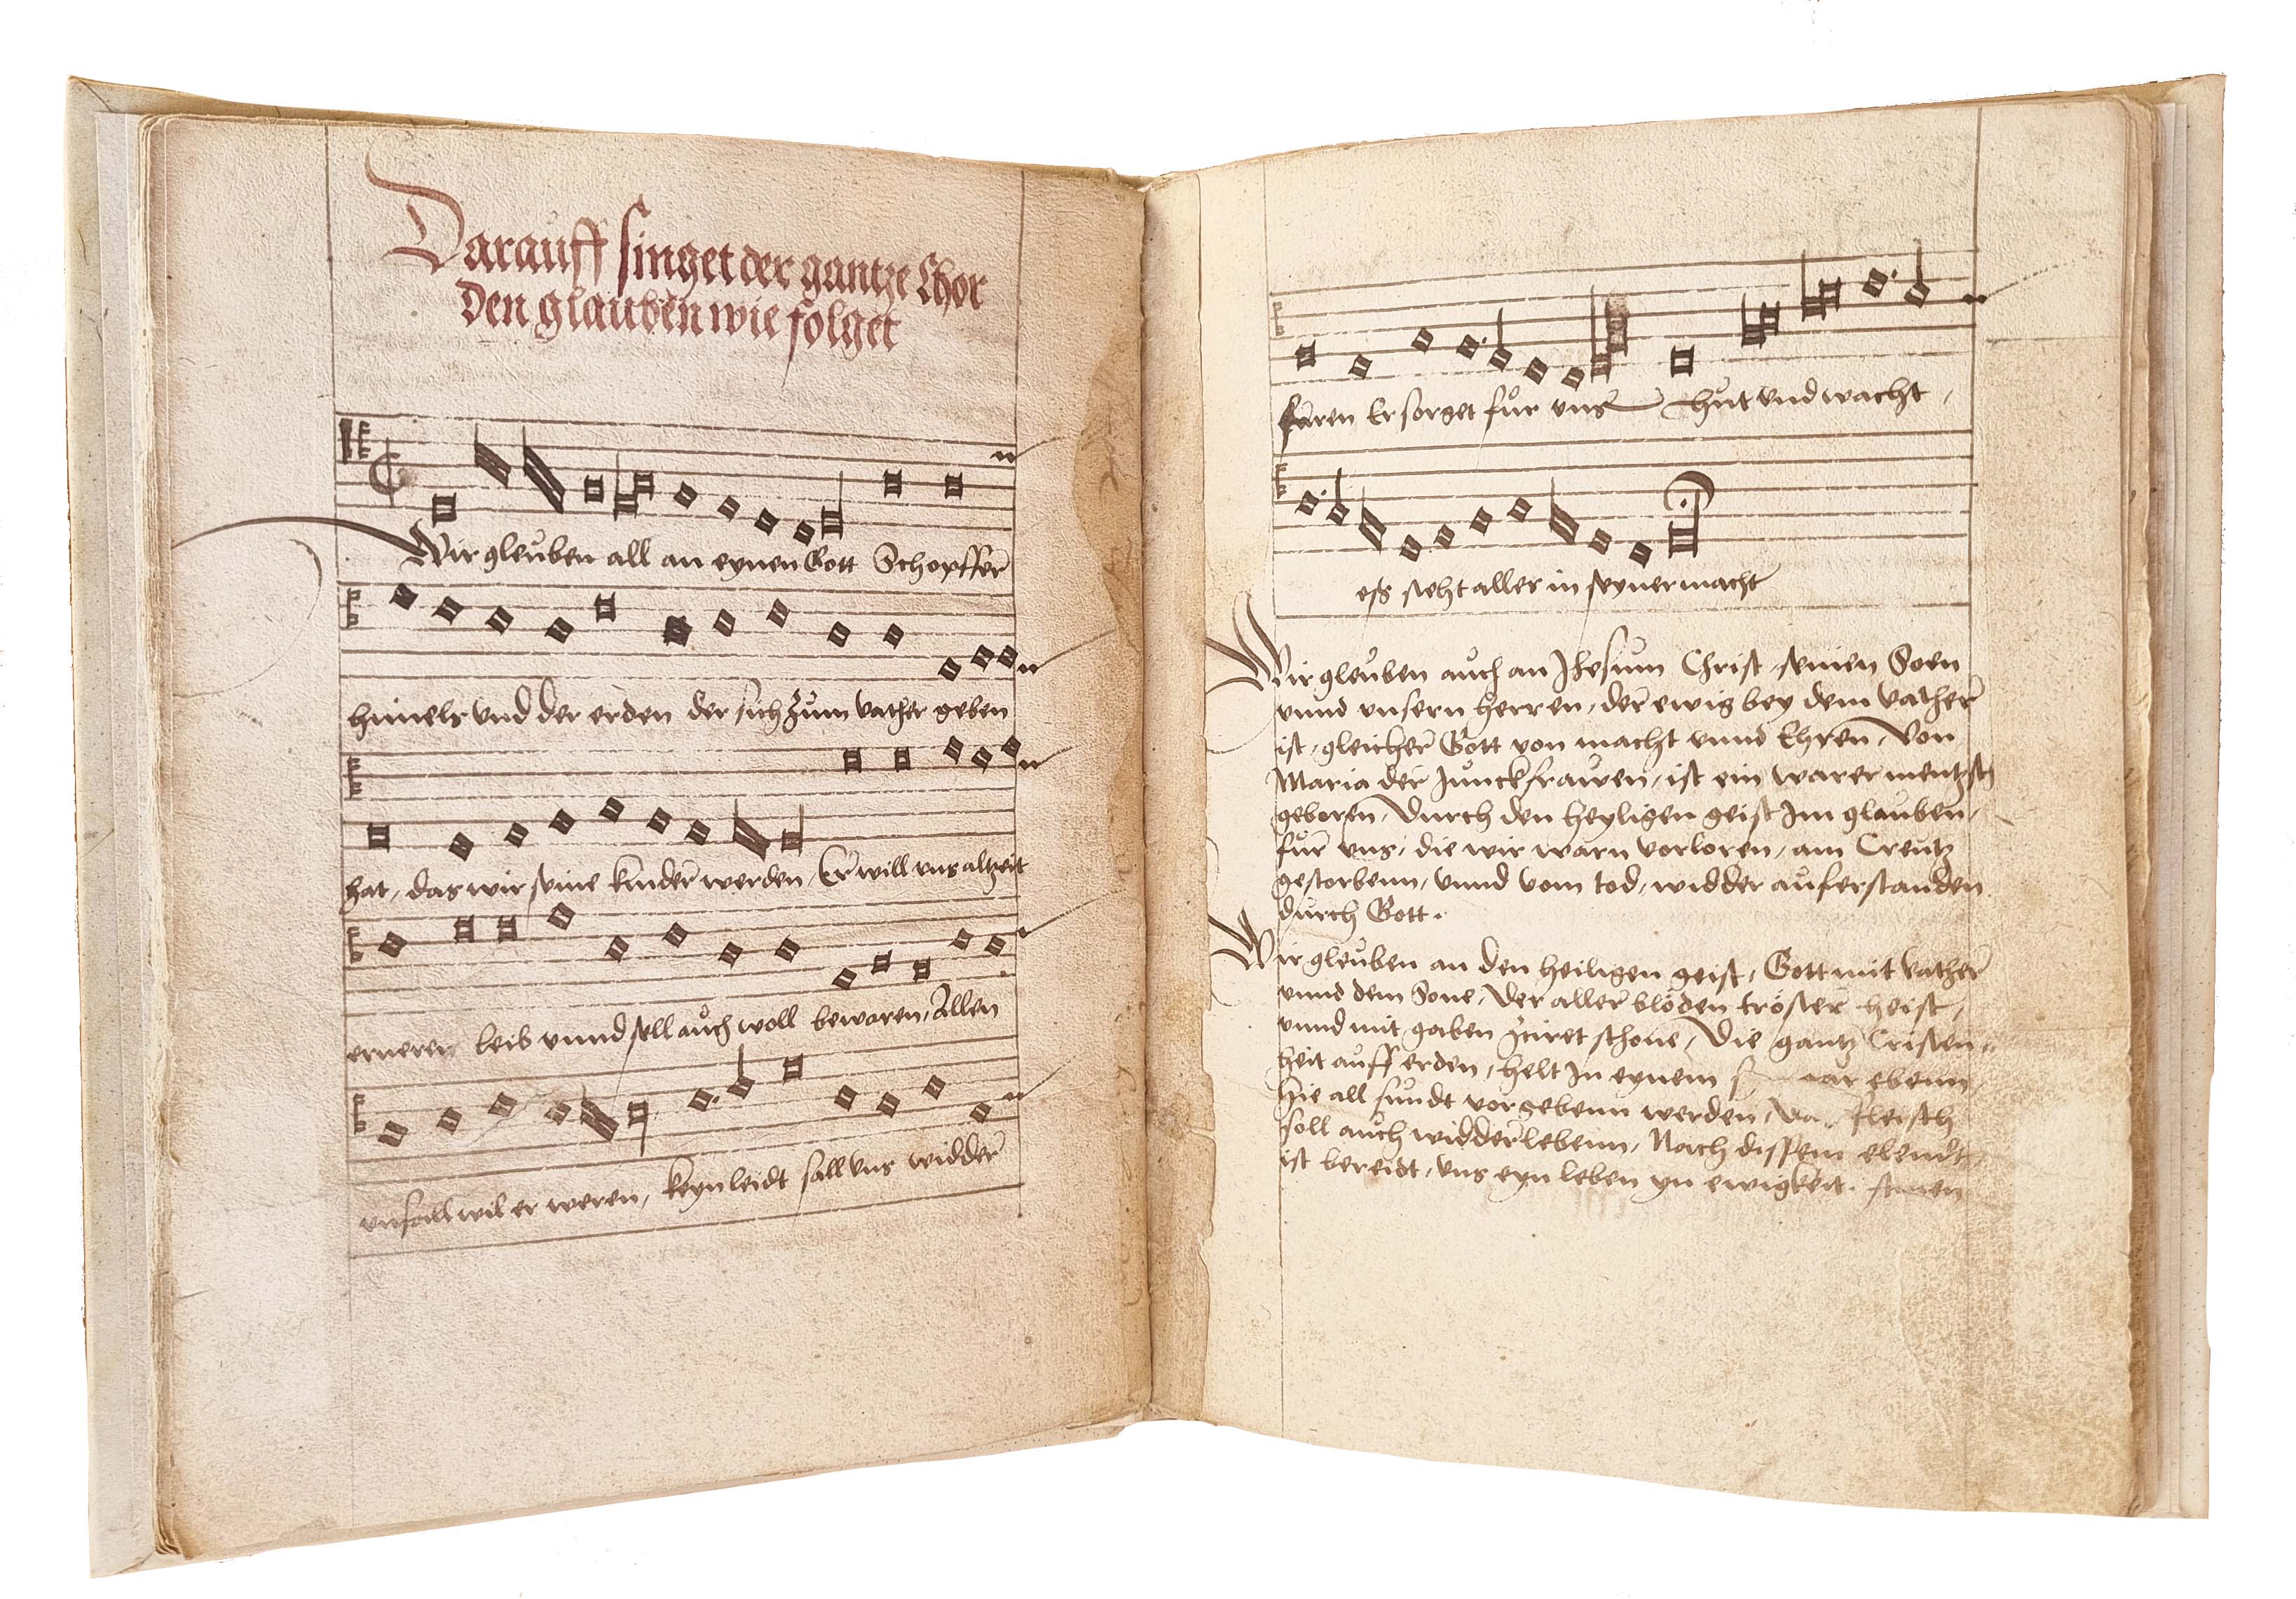 Darauff singet der gantze Chor
den glauben wie folget
Wir gleuben all an eynen Gott Schopffer
himels vnd der erden der sich zum vather geben
hat, das wir seine kinder werden, Er will vns altzeit
erneren leib vnnd sell auch woll bewaren, Allen
vnfall wil er weren, keyn leidt sall vns widder
faren Er sorget für vns hüt vnd wacht,
eß steht alles in seyner macht
Wir gleuben auch an Jhesum Christ, seinen Soen
vnnd vnsern herren, der ewig bey dem vather
ist, gleicher Gott von macht vnnd Ehren, Von
Maria der Junckfrawen, ist ein warer mentzsch
geboren, Durch den heyligen geist Im glauben,
für vns, die wir warn vorloren, am Creutz
gestorbenn, vnnd vom tod, widder auferstanden
durch Gott.
Wir gleuben an den heiligen geist, Gott mit vather
vnnd dem Sone, Der aller blöden tröster heist,
vnnd mit gaben ziret schone, Die gantz Cristen,,
heit auff erden, helt In eynem ebenn,
hie all sundt vorgebenn werden, fleisch
soll auch widder lebenn, Nach dissem elendt
ist bereidt, vns eyn leben yn ewigkeit. Amen